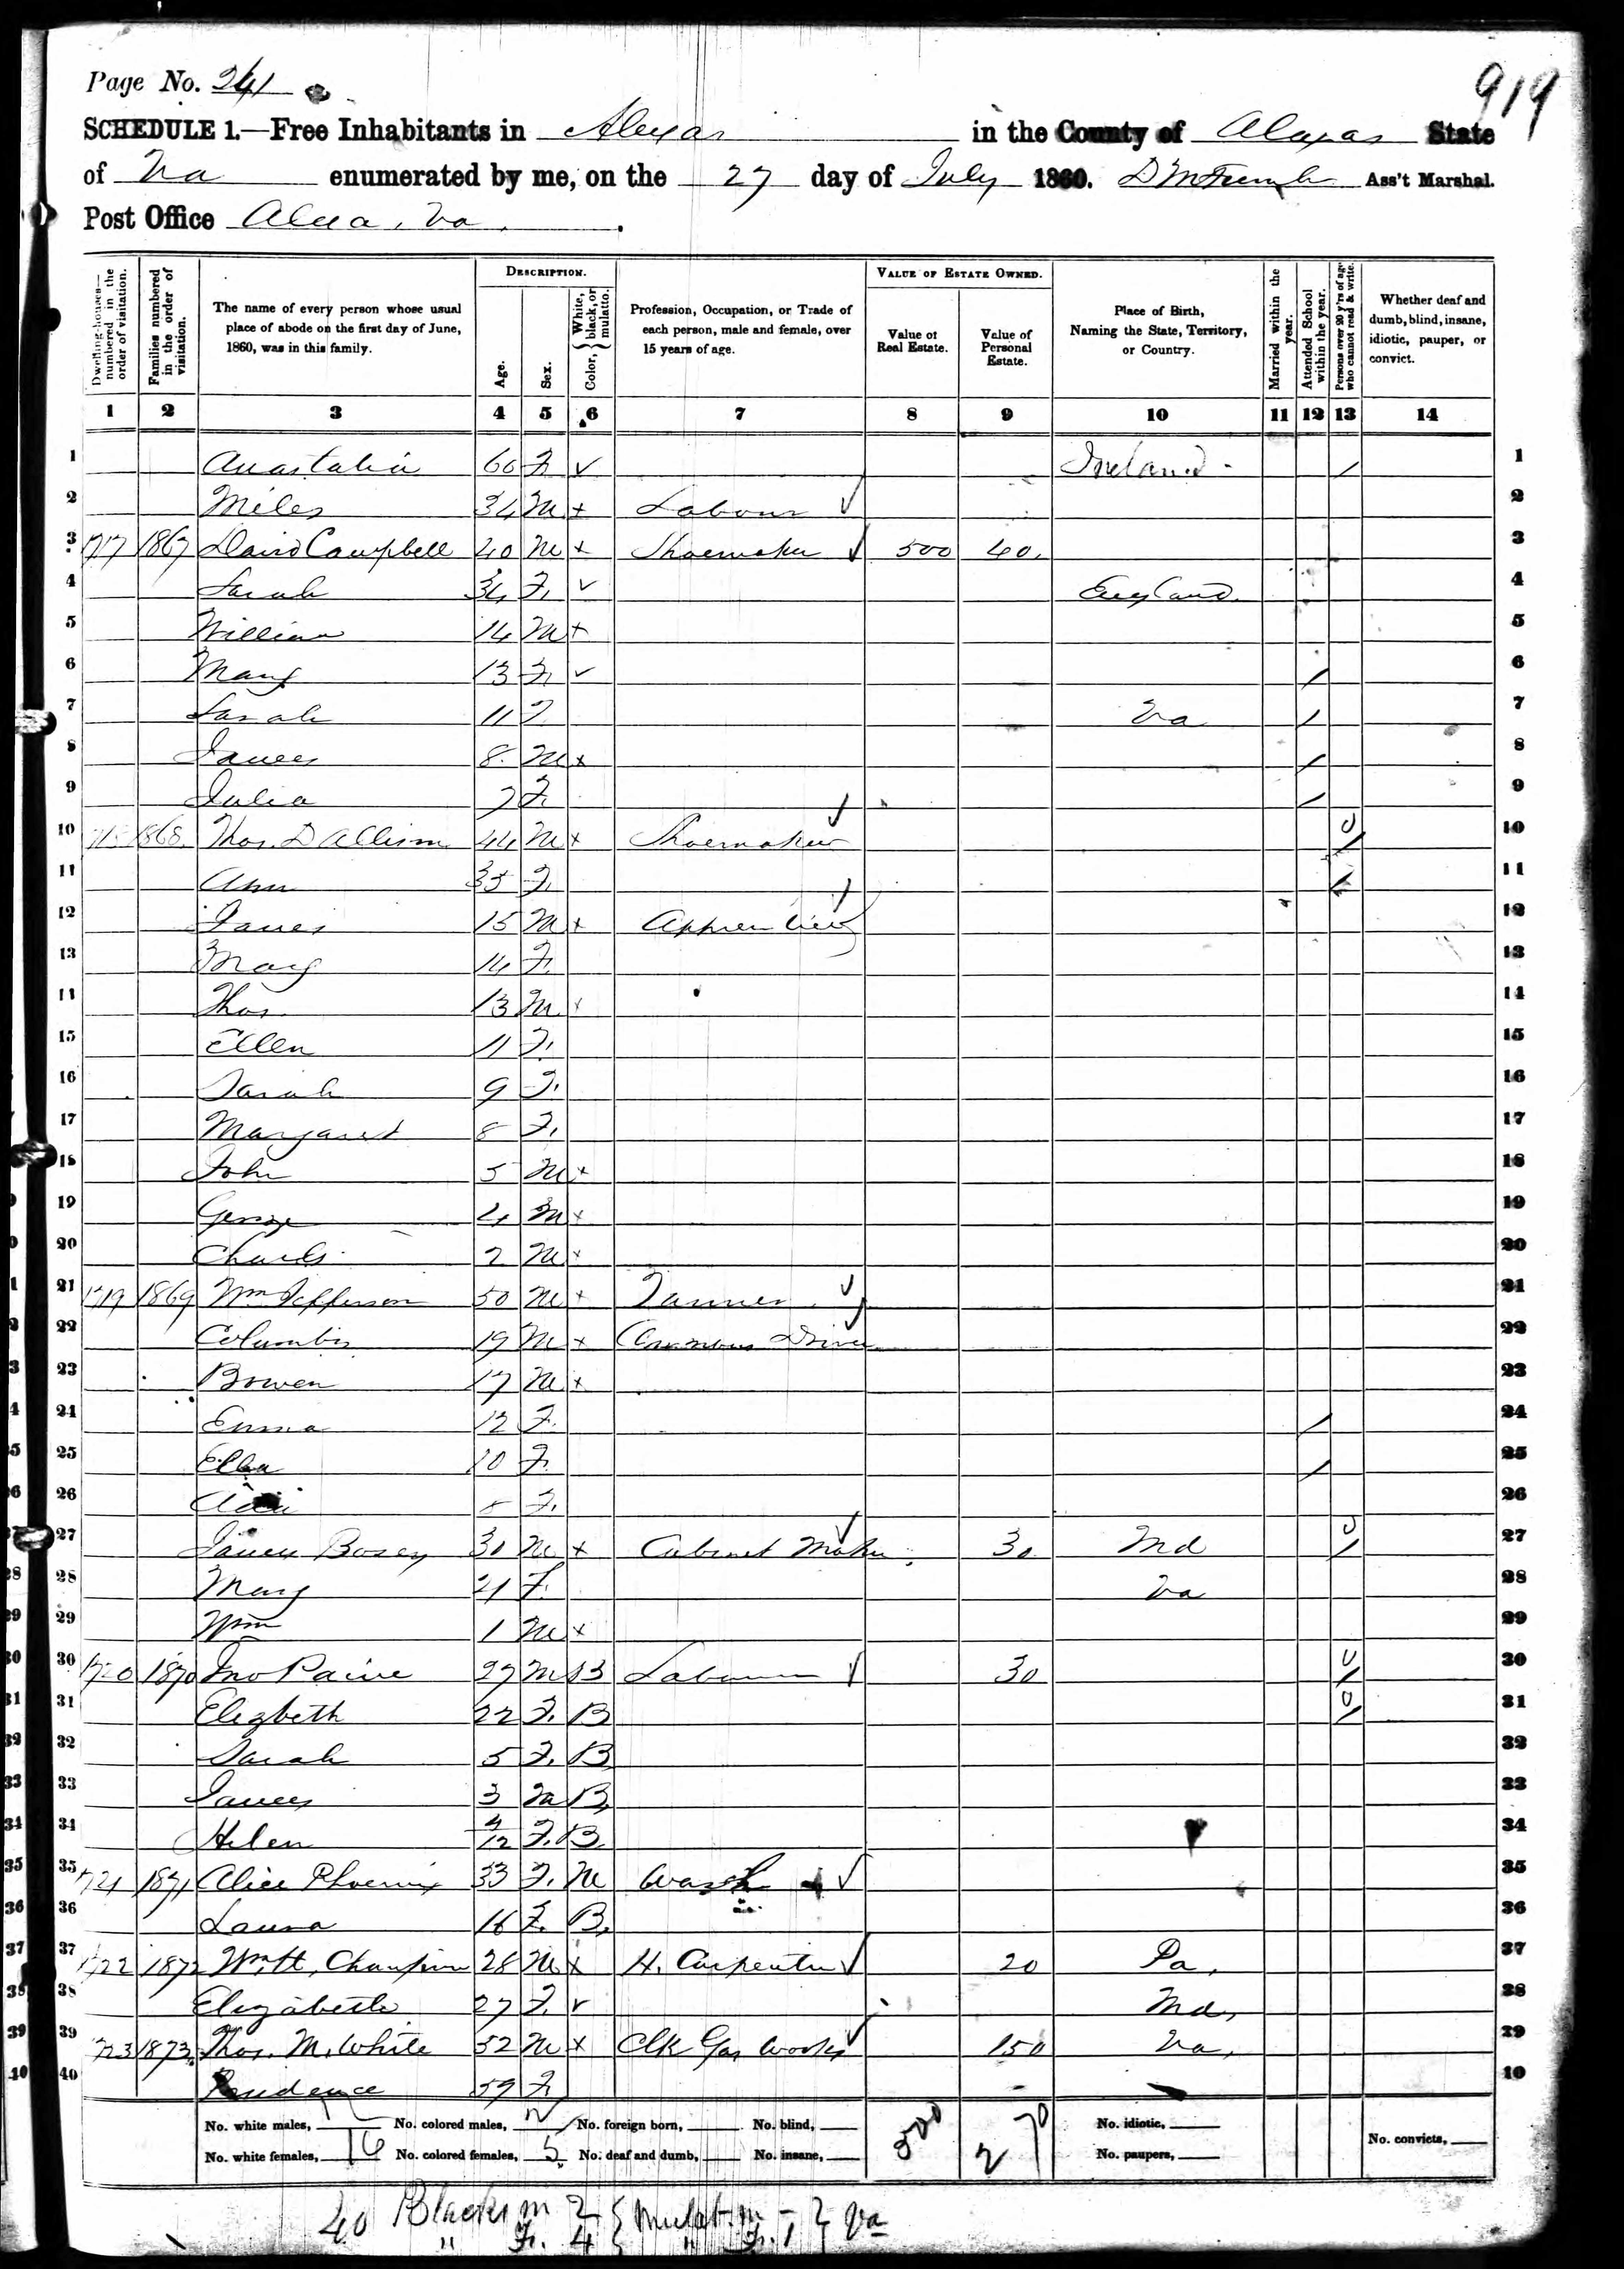 Page No. 241
919
SCHEDULE 1.—Free Inhabitants in Alexas in the County of Alexas State
of Va enumerated by me, on the 27 day of July 1860. Ass't Marshal.
Post Office Alexa, Va.
Dwelling-houses—numbered in the order of visitation.
Families numbered in the order of visitation.
The name of every person whose usual place of abode on the first day of June, 1860, was in this family.
DESCRIPTION.
Age.
Sex.
Color, { White, black, or mulatto.
Profession, Occupation, or Trade of each person, male and female, over 15 years of age.
VALUE OF ESTATE OWNED.
Value of Real Estate.
Value of Personal Estate.
Place of Birth, Naming the State, Territory, or Country.
Married within the year.
Attended School within the year.
Persons over 20 y'rs of age who cannot read & write.
Whether deaf and dumb, blind, insane, idiotic, pauper, or convict.
1 2 3 4 5 6 7 8 9 10 11 12 13 14
1 Anastatia 60 F ✓ Ireland / 1
2 Miles 34 M x Labour ✓ 2
3 1717 1867 David Campbell 40 M x Shoemaker ✓ 500 40 3
4 Sarah 34 F. ✓ England 4
5 William 14 M x 5
6 Mary 13 F. ✓ / 6
7 Sarah 11 F Va / 7
8 James 8 M x / 8
9 Julia 7 F. / 9
10 1718 1868 Thos. D Allison 44 M x Shoemaker ✓ / 10
11 Ann 35 F. / 11
12 James 15 M x Apprentice ✓ 12
13 Mary 14 F. 13
14 Thos. 13 M. x 14
15 Ellen 11 F. 15
16 Sarah 9 F. 16
17 Margaret 8 F. 17
18 John 5 M x 18
19 George 4 M x 19
20 Charls 2 M x 20
21 1719 1869 Wm Jefferson 50 M x Tanner ✓ 21
22 Columbus 19 M x Omnibus Driver ✓ 22
23 Bowen 17 M x 23
24 Emma 12 F. / 24
25 Ella 10 F. / 25
26 8 F. 26
27 James Posey 30 M x Cabinet Maker ✓ 30 Md / 27
28 Mary 21 F. Va 28
29 Wm 1 M x 29
30 1720 1870 Jno Paine 27 M B Labourer ✓ 30 / 30
31 Elizbeth 22 F. B / 31
32 Sarah 5 F. B 32
33 James 3 M B 33
34 Helen 4/12 F. B 34
35 1721 1871 Alice Phoenix 33 F. M Wash ✓ 35
36 Laura 16 F. B. 36
37 1722 1872 Wm H. Champion 28 M x H. Carpenter ✓ 20 Pa. 37
38 Elizabeth 27 F. ✓ Md, 38
39 1723 1873 Thos. M. White 52 M x Clk Gas Works ✓ 150 Va, 39
40 Prudence 59 F 40
No. white males, 17 No. colored males, 2 No. foreign born, No. blind, 500 270 No. idiotic,
No. white females, 16 No. colored females, 5 No. deaf and dumb, No. insane, No. paupers, No. convicts,
40 Blacks m 2 { Mulat. m - } Va
" F. 4 { " F. 1 }